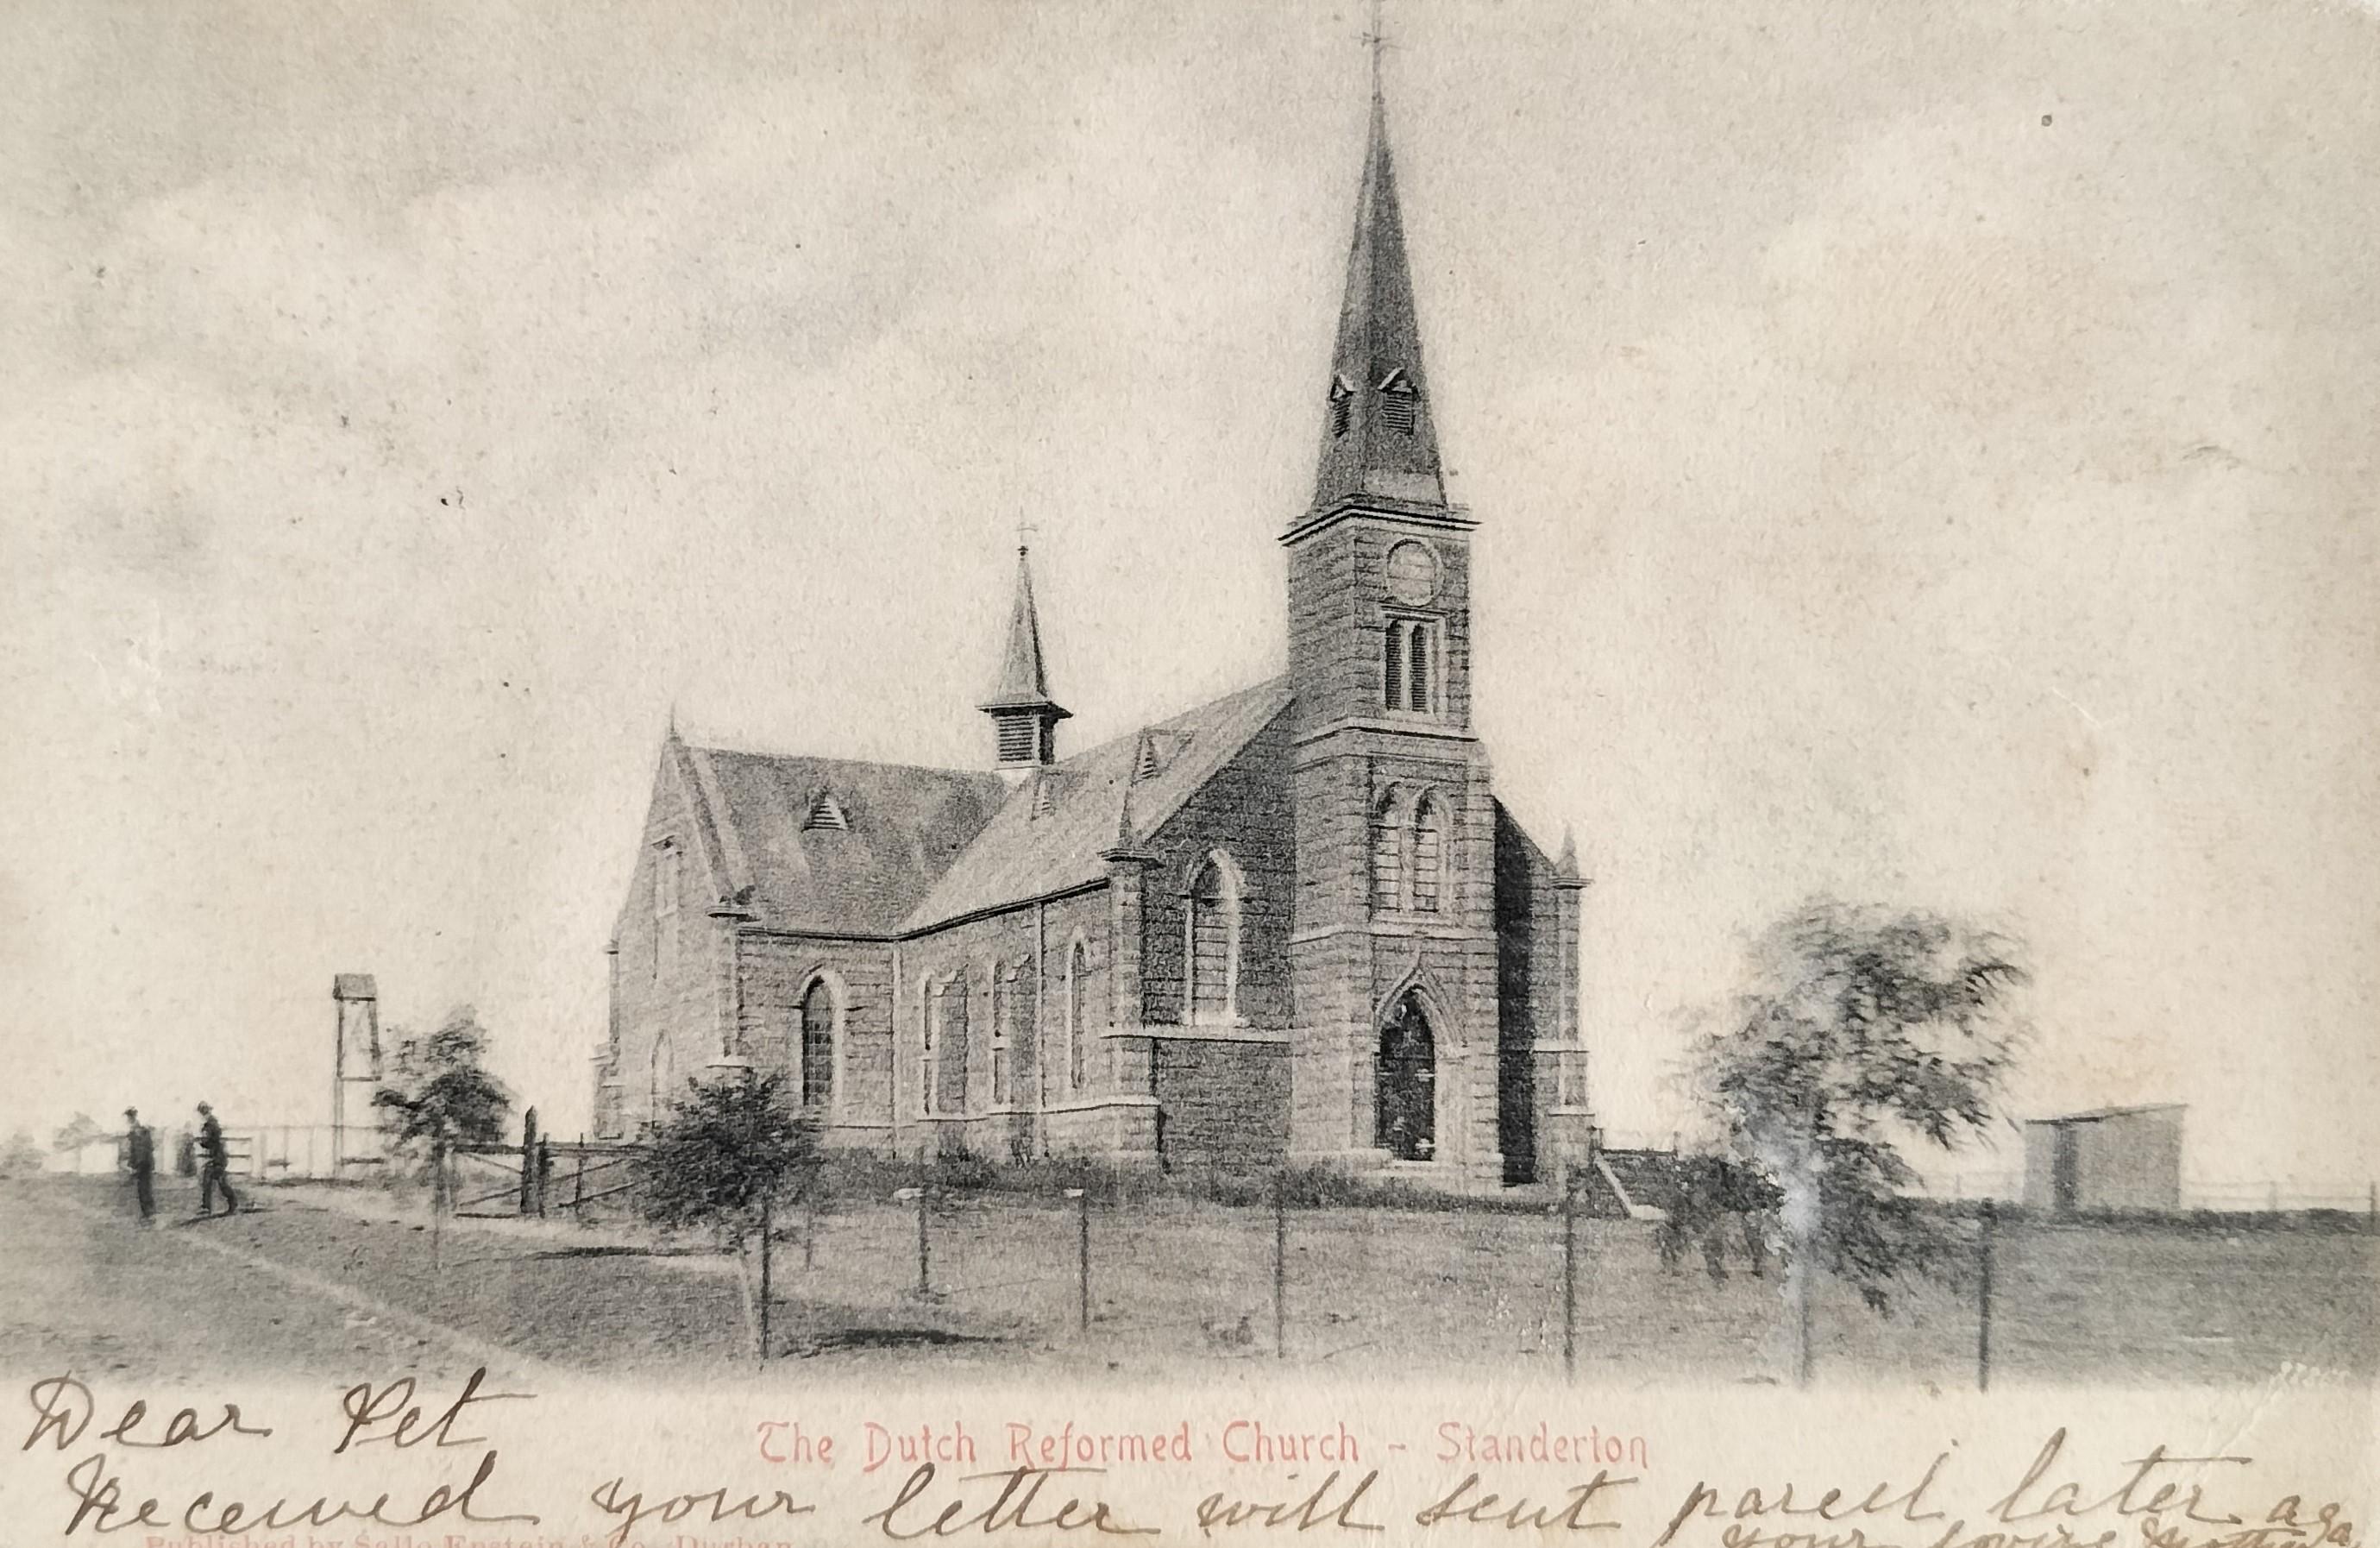 Dear Pet
The Dutch Reformed Church - Standerton
Received your letter will sent parcel later
Published by Sallo Epstein & Co. Durban
your loving